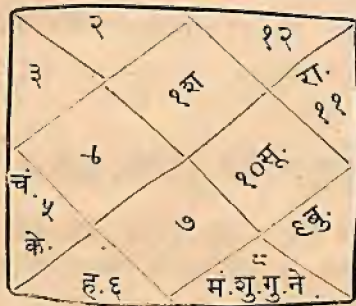 २
१२
३
१श
रा.
११
-६
१०सू.
चं.
५
के.
७
९बु.
ह.६
८
मं.शु.गु.ने